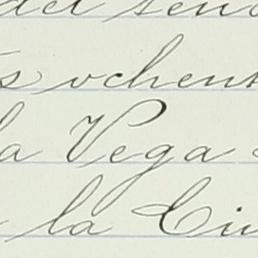 del
s ochent
la Vega
la Ciu